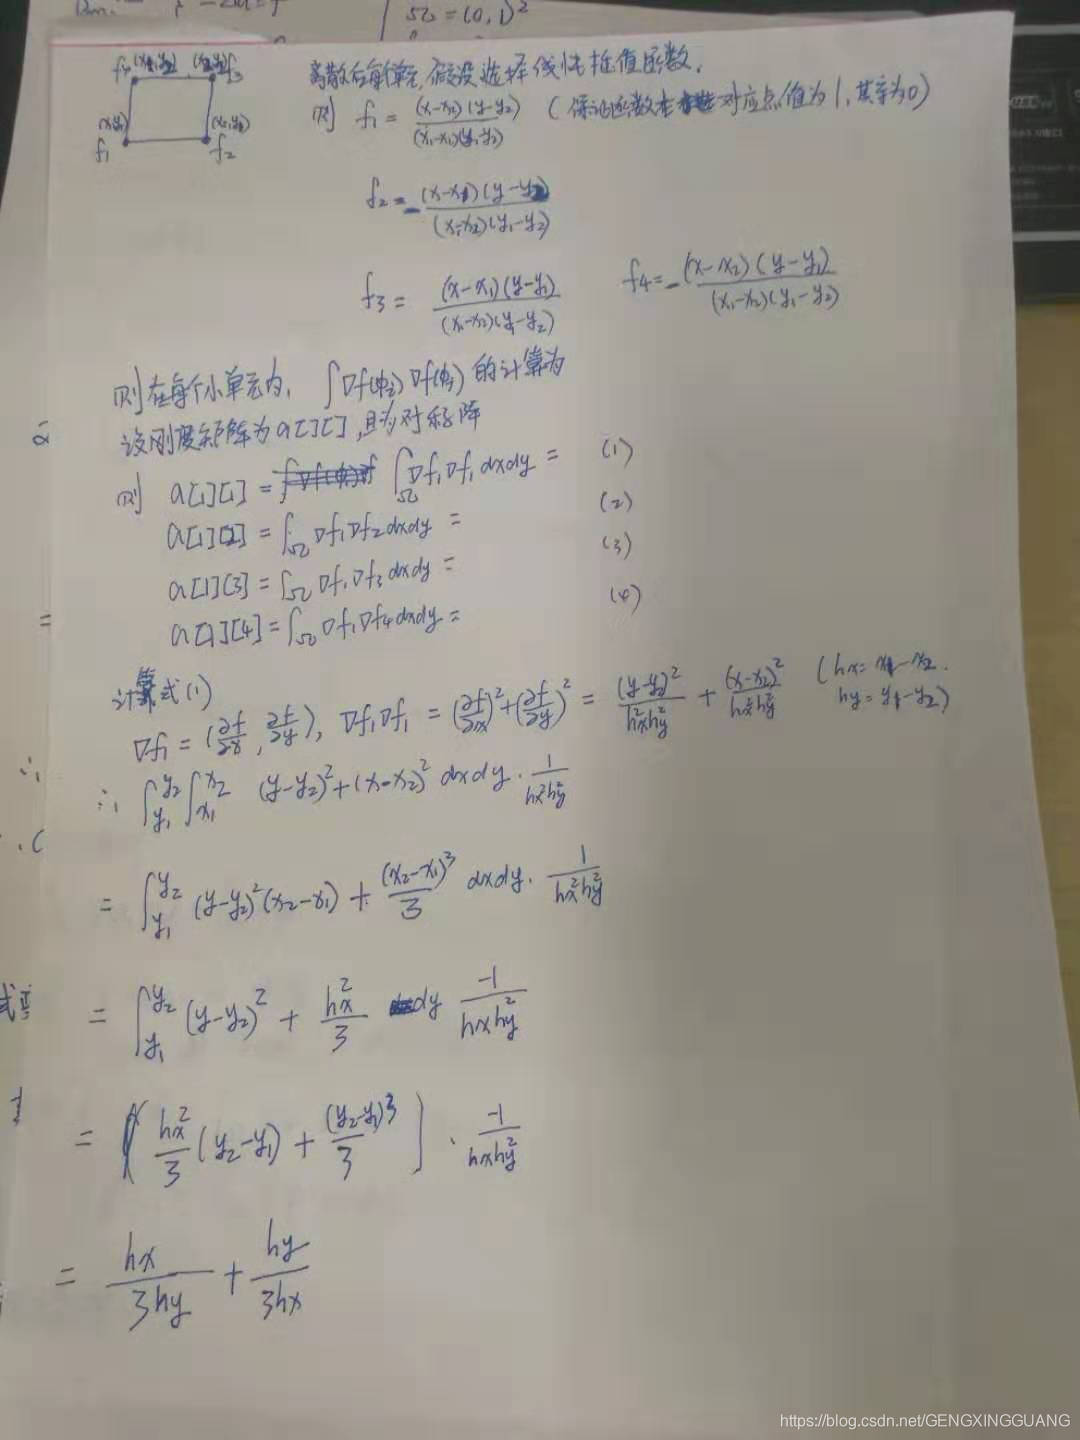 Ω = (0,1)²
f4 (x1,y2) (x2,y2) f3
离散后每个单元,假设选择线性插值函数.
则 f1 = (x-x2)(y-y2) / (x1-x2)(y1-y2) (保证函数在对应点值为1,其余为0)
(x1y1) (x2,y1)
f1 f2
f2 = - (x-x1)(y-y2) / (x1-x2)(y1-y2)
f3 = (x-x1)(y-y1) / (x1-x2)(y1-y2) f4 = - (x-x2)(y-y1) / (x1-x2)(y1-y2)
则在每个小单元内, ∫∇f(φi)∇f(φj) 的计算为
设刚度矩阵为a[][],且为对称阵
则 a[1][1] = ∫Ω ∇f1∇f1 dxdy = (1)
a[1][2] = ∫Ω ∇f1∇f2 dxdy = (2)
a[1][3] = ∫Ω ∇f1∇f3 dxdy = (3)
a[1][4] = ∫Ω ∇f1∇f4 dxdy = (4)
计算式(1)
∇f1 = (∂f/∂x, ∂f/∂y), ∇f1∇f1 = (∂f/∂x)² + (∂f/∂y)² = (y-y2)²/hx²hy² + (x-x2)²/hx²hy² (hx = x1-x2. hy = y1-y2)
∴ ∫y1^y2 ∫x1^x2 (y-y2)²+(x-x2)² dxdy · 1/hx²hy²
= ∫y1^y2 (y-y2)²(x2-x1) + (x2-x1)³/3 dxdy · 1/hx²hy²
= ∫y1^y2 (y-y2)² + hx²/3 dy -1/hxhy²
= [hx²/3 (y2-y1) + (y2-y1)³/3] · -1/hxhy²
= hx/3hy + hy/3hx
https://blog.csdn.net/GENGXINGGUANG